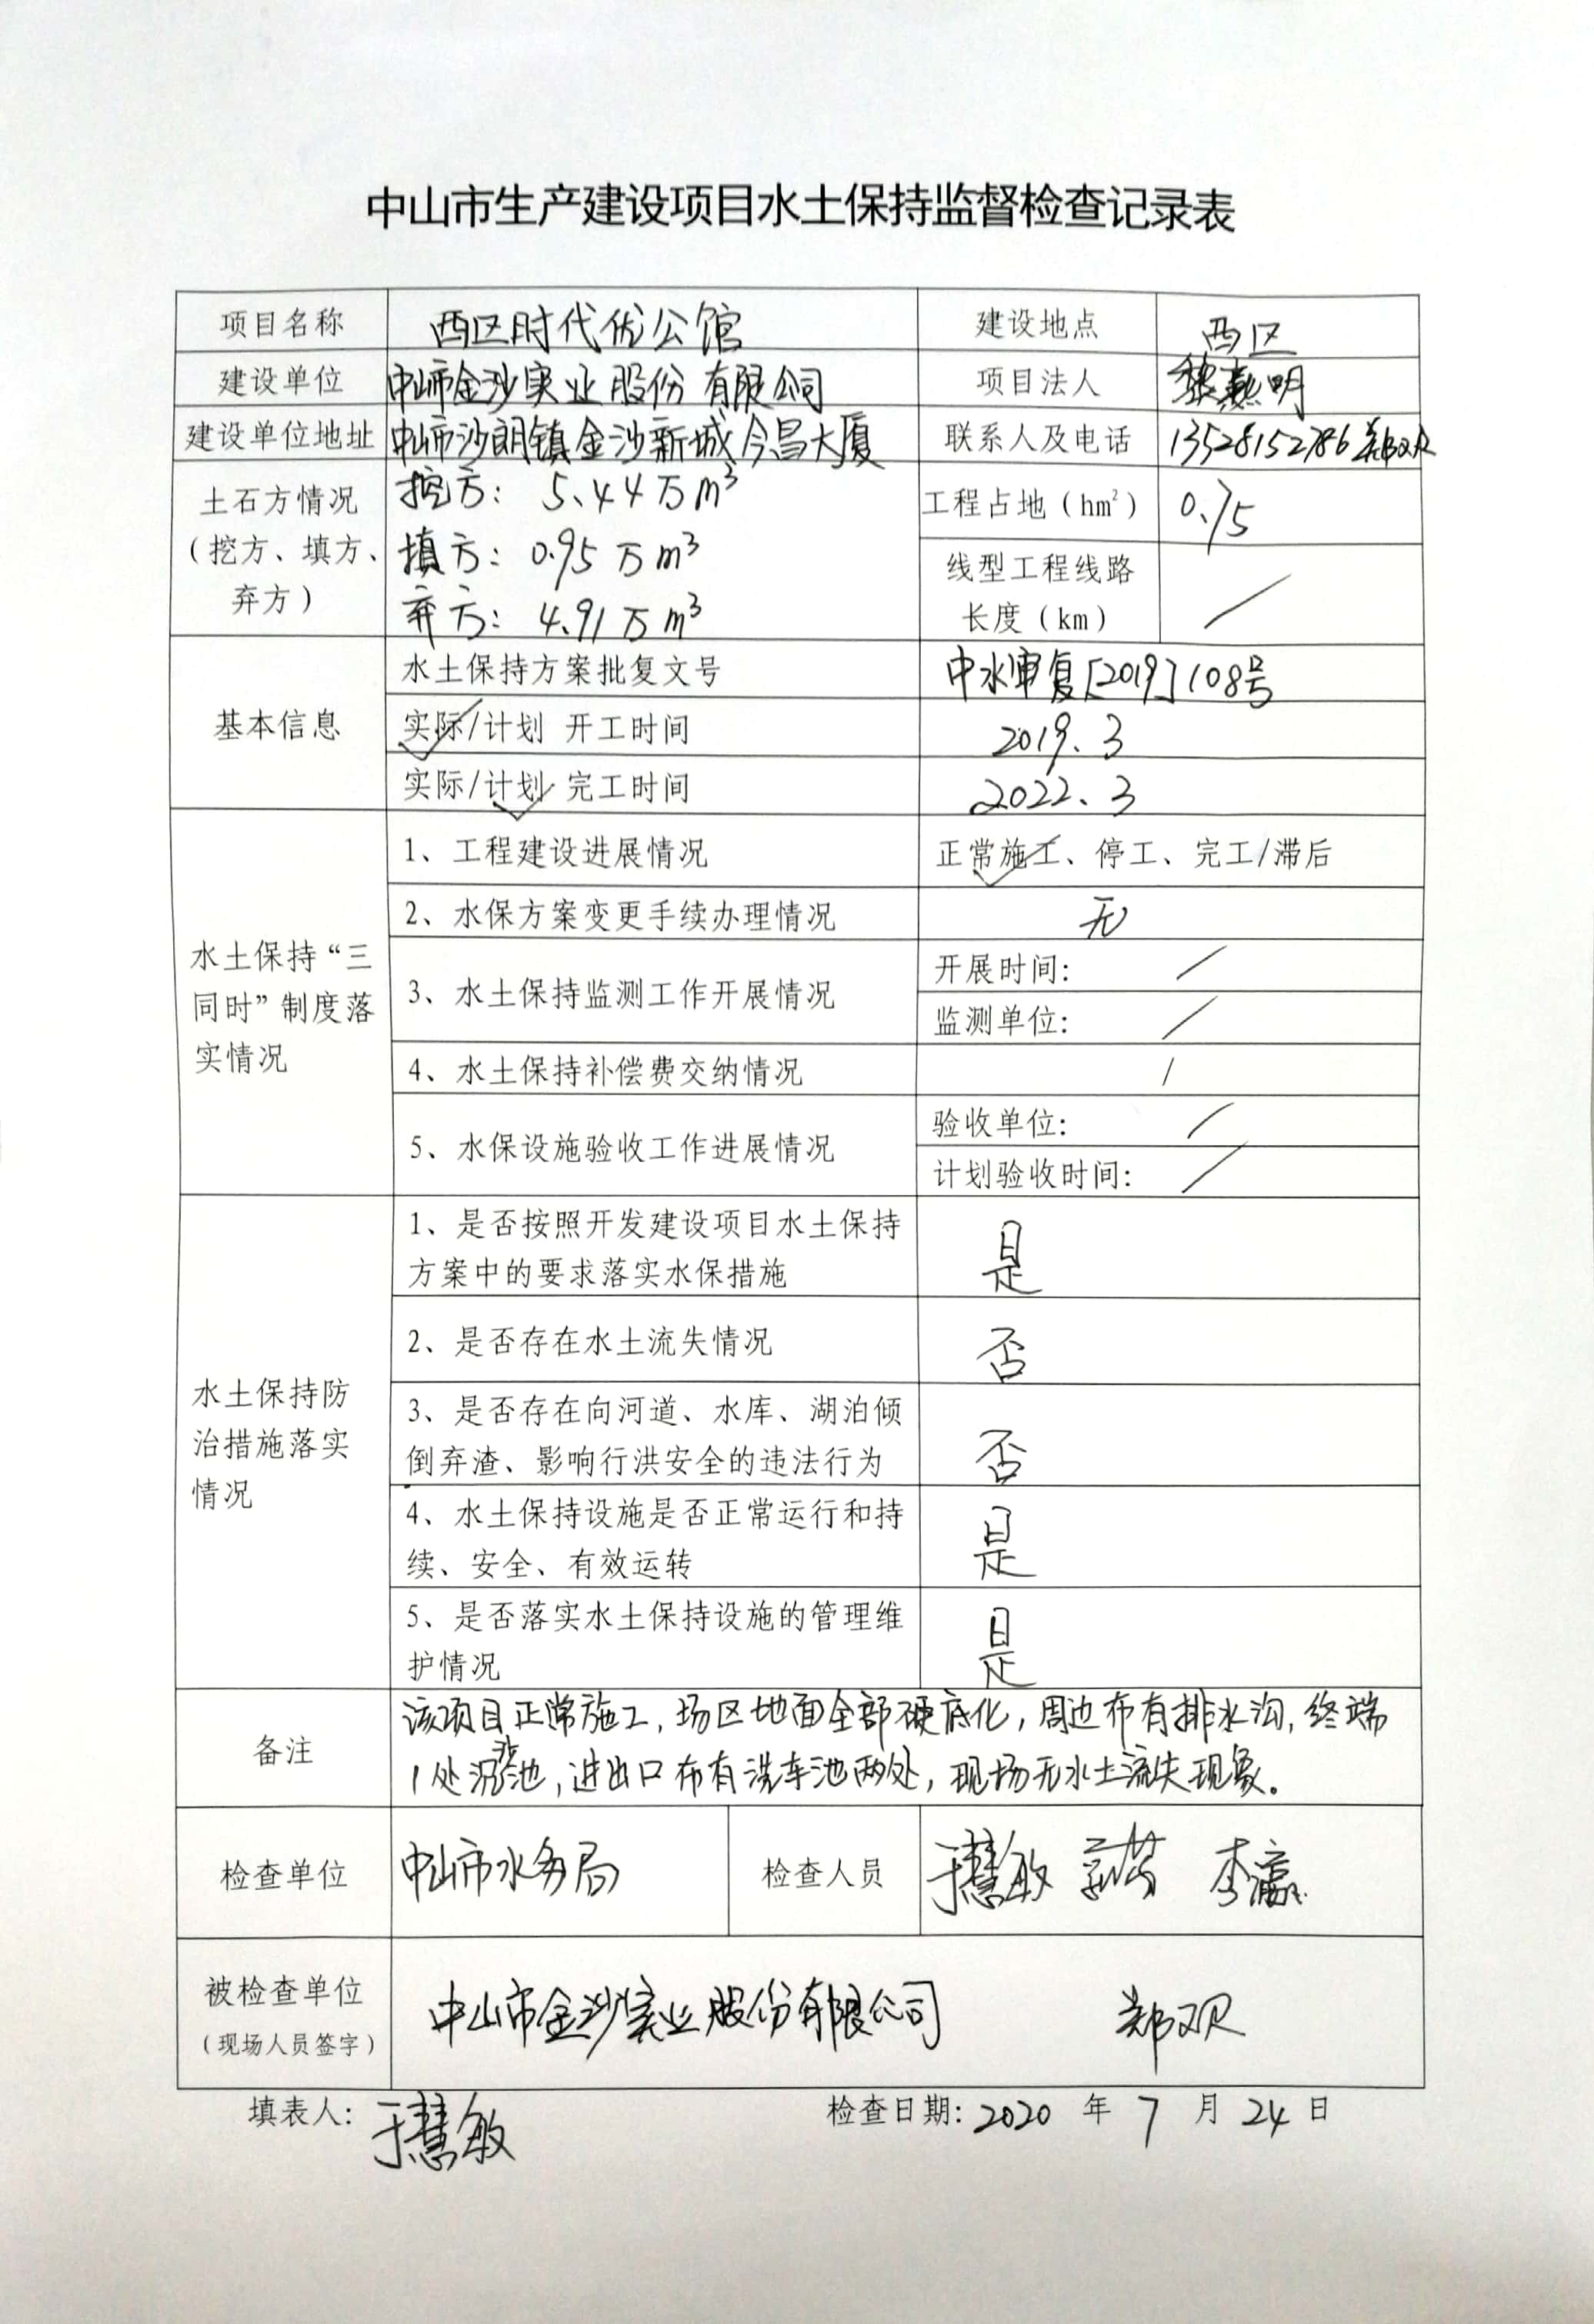 中山市生产建设项目水土保持监督检查记录表
项目名称 西区时代优公馆 建设地点 西区
建设单位 中山市金沙实业股份有限公司 项目法人 黎 明
建设单位地址 中山市沙朗镇金沙新城今昌大厦 联系人及电话 13528152786 郑双欢
土石方情况
(挖方、填方、
弃方)
挖方: 5.44万m³
填方: 0.95万m³
弃方: 4.91万m³
工程占地(hm²) 0.75
线型工程线路
长度(km) /
基本信息
水土保持方案批复文号 中水审复[2019]108号
实际/计划 开工时间 2019.3
实际/计划 完工时间 2022.3
水土保持“三
同时”制度落
实情况
1、工程建设进展情况 正常施工、停工、完工/滞后
2、水保方案变更手续办理情况 无
3、水土保持监测工作开展情况
开展时间: /
监测单位: /
4、水土保持补偿费交纳情况 /
5、水保设施验收工作进展情况
验收单位: /
计划验收时间: /
水土保持防
治措施落实
情况
1、是否按照开发建设项目水土保持
方案中的要求落实水保措施 是
2、是否存在水土流失情况 否
3、是否存在向河道、水库、湖泊倾
倒弃渣、影响行洪安全的违法行为 否
4、水土保持设施是否正常运行和持
续、安全、有效运转 是
5、是否落实水土保持设施的管理维
护情况 是
备注
该项目正常施工,场区地面全部硬底化,周边布有排水沟,终端
1处沉淀池,进出口布有洗车池两处,现场无水土流失现象。
检查单位 中山市水务局 检查人员 于慧敏 李瀛
被检查单位
(现场人员签字)
中山市金沙实业股份有限公司 郑欢
填表人: 于慧敏 检查日期: 2020 年 7 月 24 日